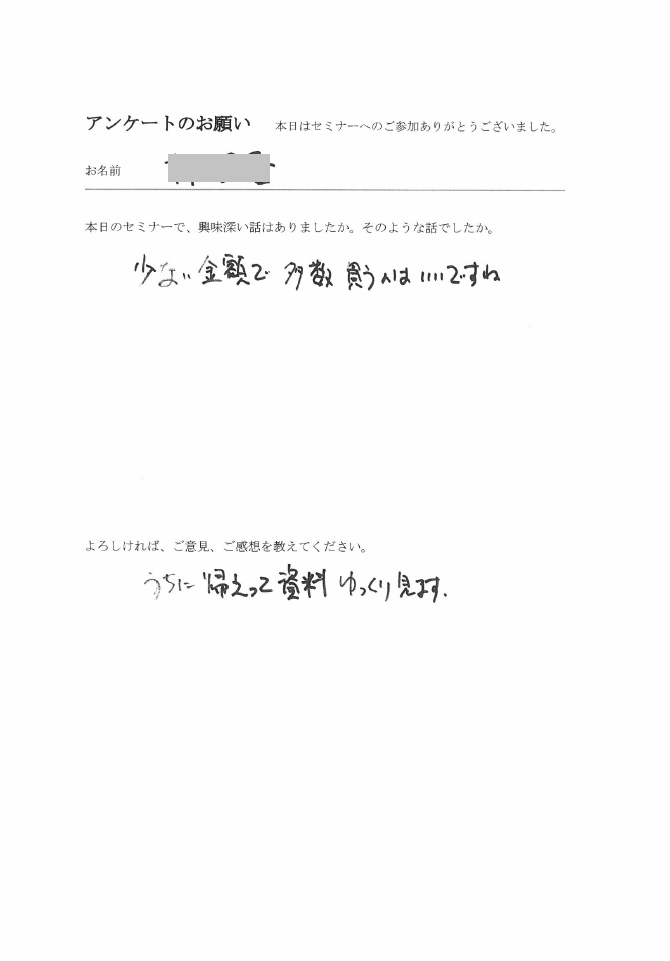 アンケートのお願い 本日はセミナーへのご参加ありがとうございました。
お名前
本日のセミナーで、興味深い話はありましたか。そのような話でしたか。
少ない金額で 多数 買う人は いいですね
よろしければ、ご意見、ご感想を教えてください。
うちに 帰えって 資料 ゆっくり見ます.